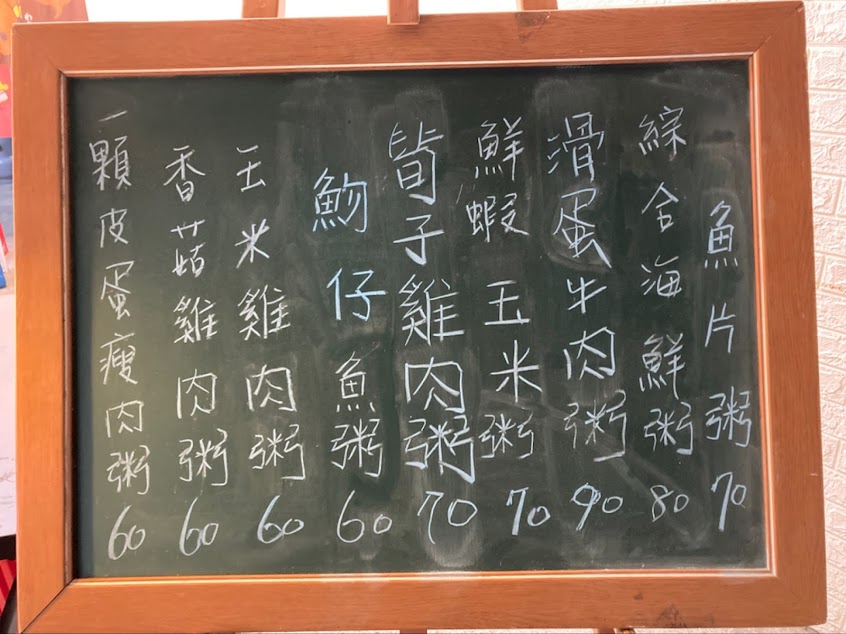 魚片粥70
綜合海鮮粥80
滑蛋牛肉粥90
鮮蝦玉米粥70
筍子雞肉粥70
魩仔魚粥60
玉米雞肉粥60
香菇雞肉粥60
一顆皮蛋瘦肉粥60